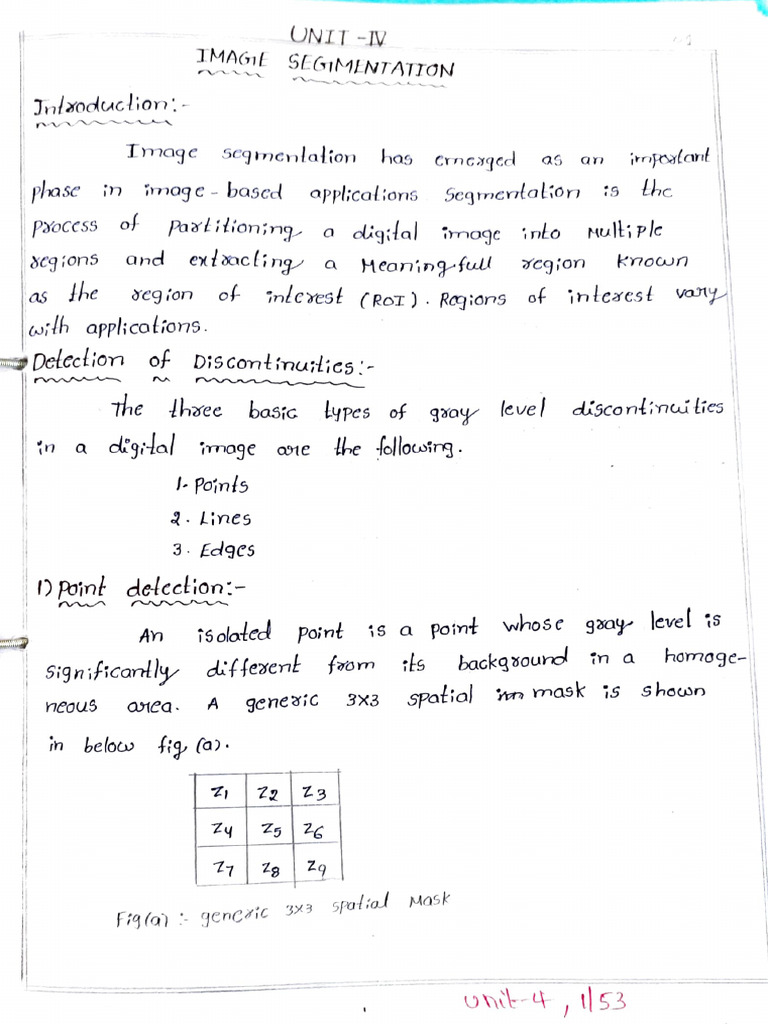 UNIT -IV
IMAGE SEGMENTATION
Introduction:-
Image segmentation has emerged as an important
phase in image-based applications segmentation is the
process of partitioning a digital image into multiple
regions and extracting a Meaningfull region known
as the region of interest (ROI). Regions of interest vary
with applications.
Detection of Discontinuities:-
The three basic types of gray level discontinuities
in a digital image are the following.
1. Points
2. Lines
3. Edges
1) Point detection:-
An isolated point is a point whose gray level is
significantly different from its background in a homoge-
neous area. A generic 3x3 spatial mask is shown
in below fig (a).
Z1 Z2 Z3
Z4 Z5 Z6
Z7 Z8 Z9
Fig(a) :- generic 3x3 spatial Mask
Unit-4, 1/53